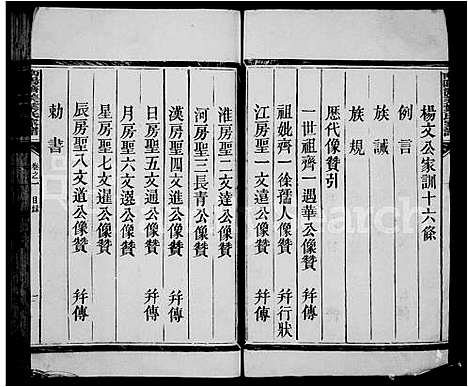 楊文公家訓十六條
例言
族誡
族規
歷代像贊引
一世祖齊一遇華公像贊 并傳
祖妣齊一徐孺人像贊 并行狀
江房聖一文遣公像贊 并傳
淮房聖二文達公像贊
河房聖三長青公像贊
漢房聖四文進公像贊 并傳
日房聖五文通公像贊 并傳
月房聖六文選公像贊
星房聖七文暹公像贊
辰房聖八文道公像贊 并傳
勅書
卷之一 目錄